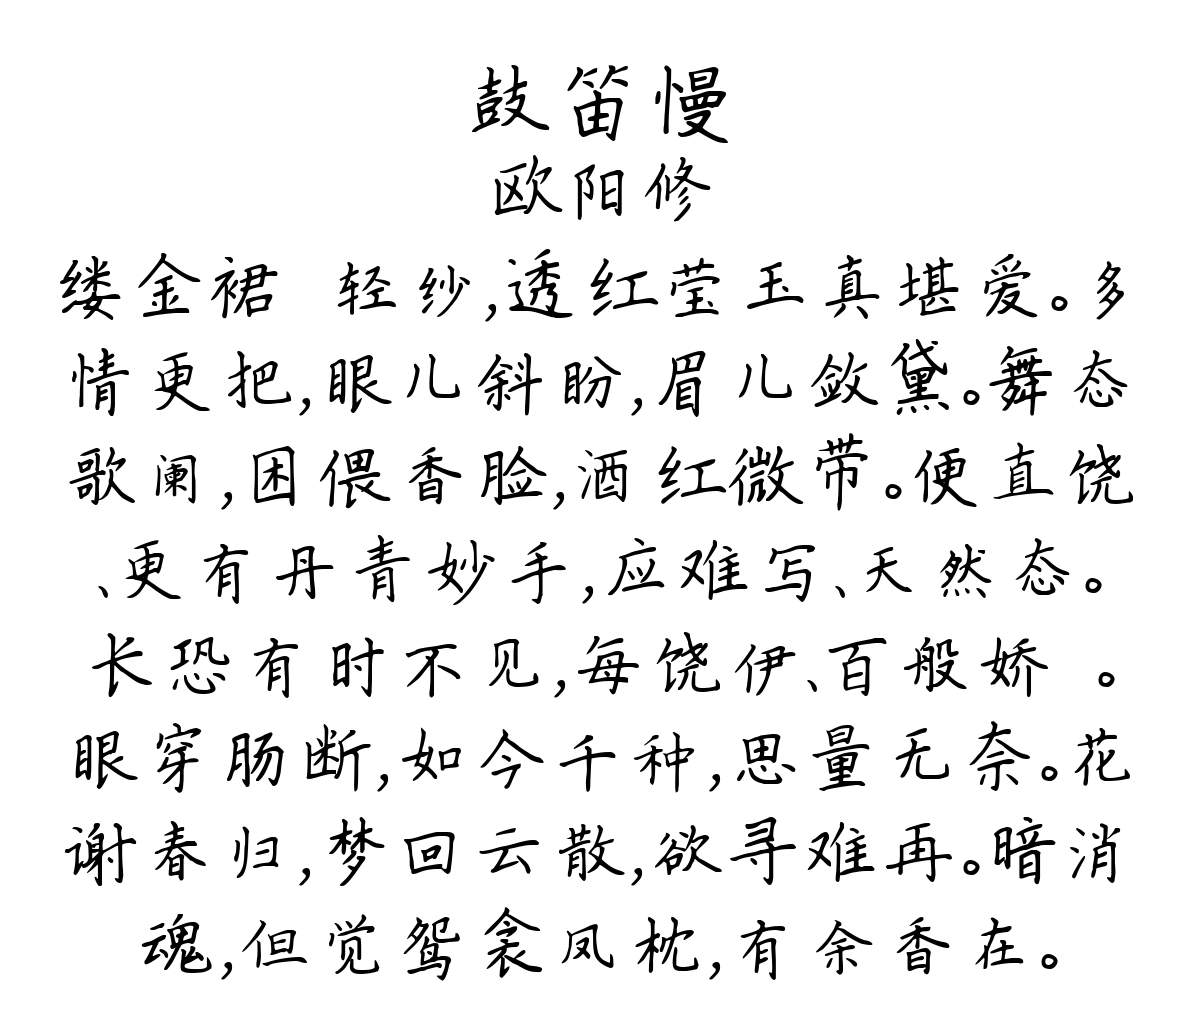 鼓笛慢
欧阳修
缕金裙 轻纱,透红莹玉真堪爱。多
情更把,眼儿斜盼,眉儿敛黛。舞态
歌阑,困偎香脸,酒红微带。便直饶
、更有丹青妙手,应难写、天然态。
长恐有时不见,每饶伊、百般娇 。
眼穿肠断,如今千种,思量无奈。花
谢春归,梦回云散,欲寻难再。暗消
魂,但觉鸳衾凤枕,有余香在。